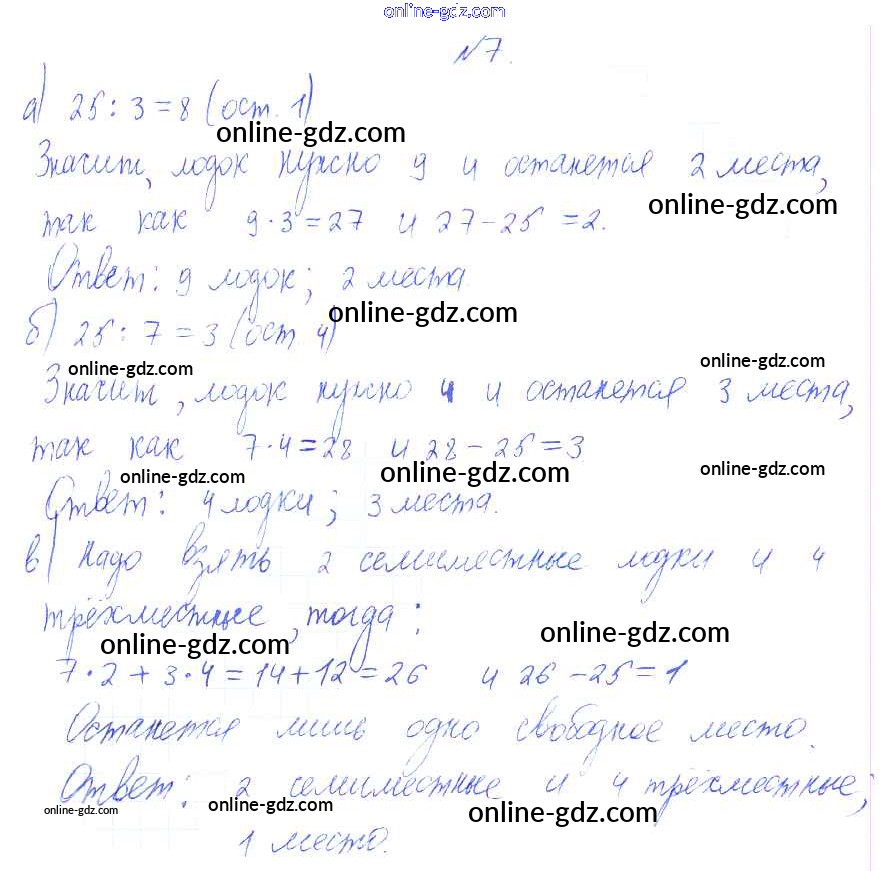 online-gdz.com
№7.
а) 25 : 3 = 8 (ост. 1)
online-gdz.com
Значит, лодок нужно 9 и останется 2 места,
online-gdz.com
так как 9·3 = 27 и 27-25 = 2.
Ответ: 9 лодок; 2 места.
online-gdz.com
б) 25 : 7 = 3 (ост. 4)
online-gdz.com online-gdz.com
Значит, лодок нужно 4 и останется 3 места,
так как 7·4 = 28 и 28-25 = 3.
online-gdz.com online-gdz.com online-gdz.com
Ответ: 4 лодки; 3 места.
в) Надо взять 2 семиместные лодки и 4
трёхместные, тогда:
online-gdz.com online-gdz.com
7·2 + 3·4 = 14+12 = 26 и 26-25 = 1
Останется лишь одно свободное место.
Ответ: 2 семиместные и 4 трёхместные;
online-gdz.com online-gdz.com online-gdz.com
1 место.